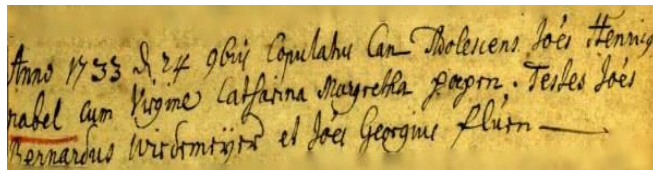 Anno 1733 d 24 9bris Copulatus Can Adolescens Joês Henricg
nabel cum Virgine Catharina Margretha papen. Testes Joês
Bernardus Wiedemeÿer et Joês Georgius flúen